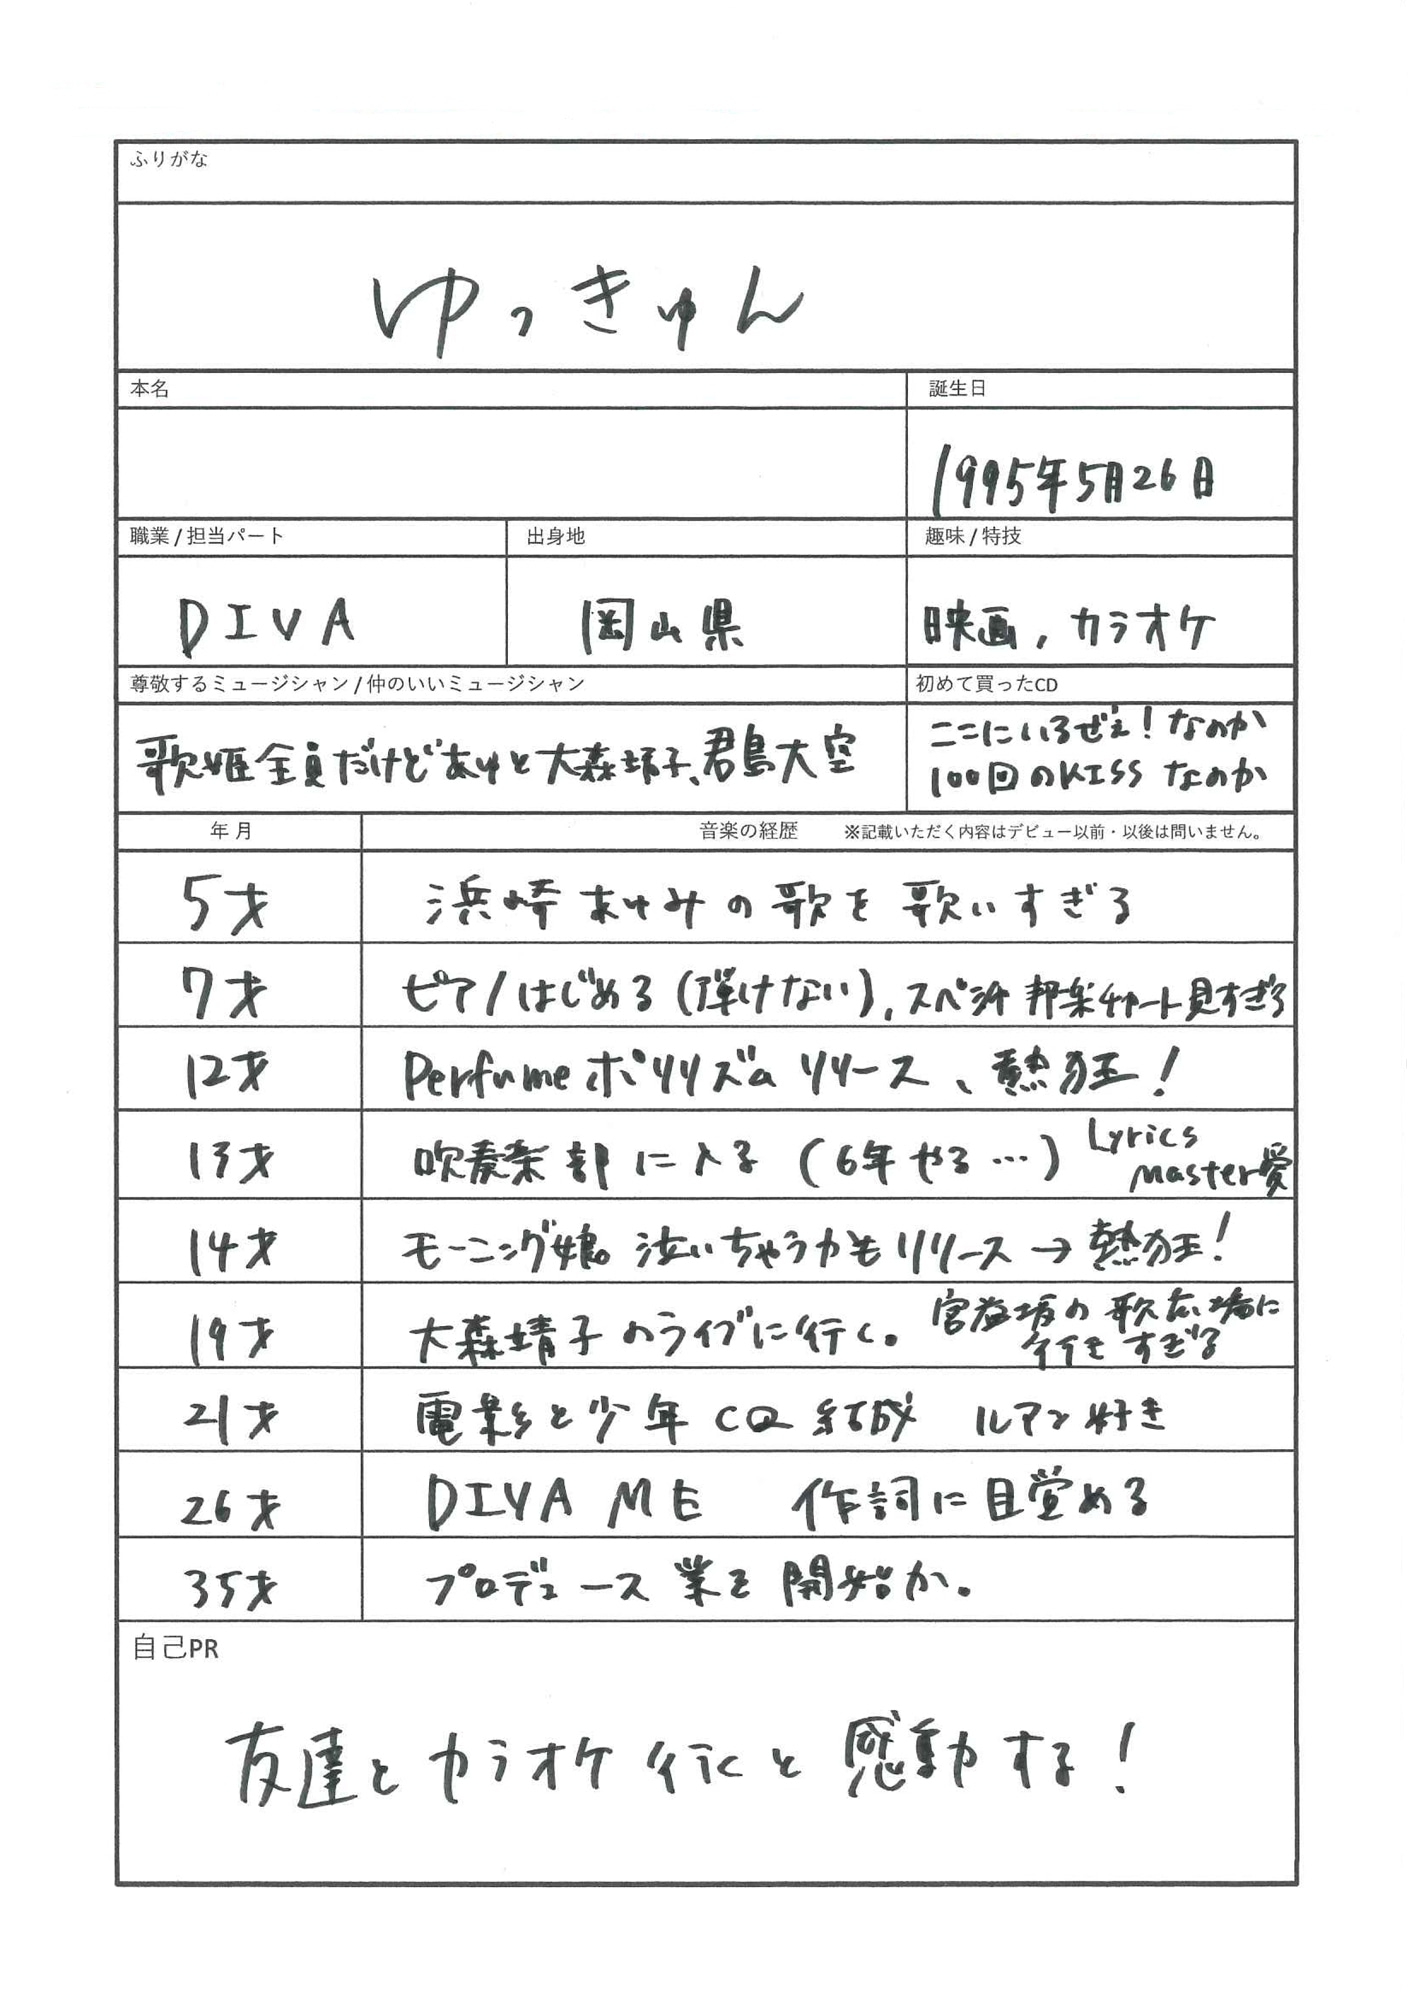 ふりがな
ゆっきゅん
本名
誕生日
1995年5月26日
職業/担当パート
出身地
趣味/特技
DIVA
岡山県
映画、カラオケ
尊敬するミュージシャン/仲のいいミュージシャン
初めて買ったCD
歌姫全員だけどあゆと大森靖子、君島大空
ここにいるぜぇ!なのか
100回のKISSなのか
年月
音楽の経歴 ※記載いただく内容はデビュー以前・以後は問いません。
5才 浜崎あゆみの歌を歌いすぎる
7才 ピアノはじめる(弾けない)、スペシャ 邦楽チャート見すぎる
12才 Perfumeポリリズム リリース、熱狂!
13才 吹奏楽部に入る (6年やる…) Lyrics
Master愛
14才 モーニング娘。泣いちゃうかもリリース→熱狂!
19才 大森靖子のライブに行く。宮益坂の歌広場に
行きすぎる
21才 電影と少年CQ結成 ルアン好き
26才 DIVA ME 作詞に目覚める
35才 プロデュース業を開始か。
自己PR
友達とカラオケ行くと感動する!